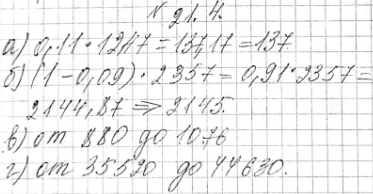 N 21.4.
а) 0,11 · 1247 = 137,17 = 137
б) (1-0,09) · 2357 = 0,91 · 2357 =
2144,87 => 2145.
в) от 880 до 1076
г) от 35520 до 44630.